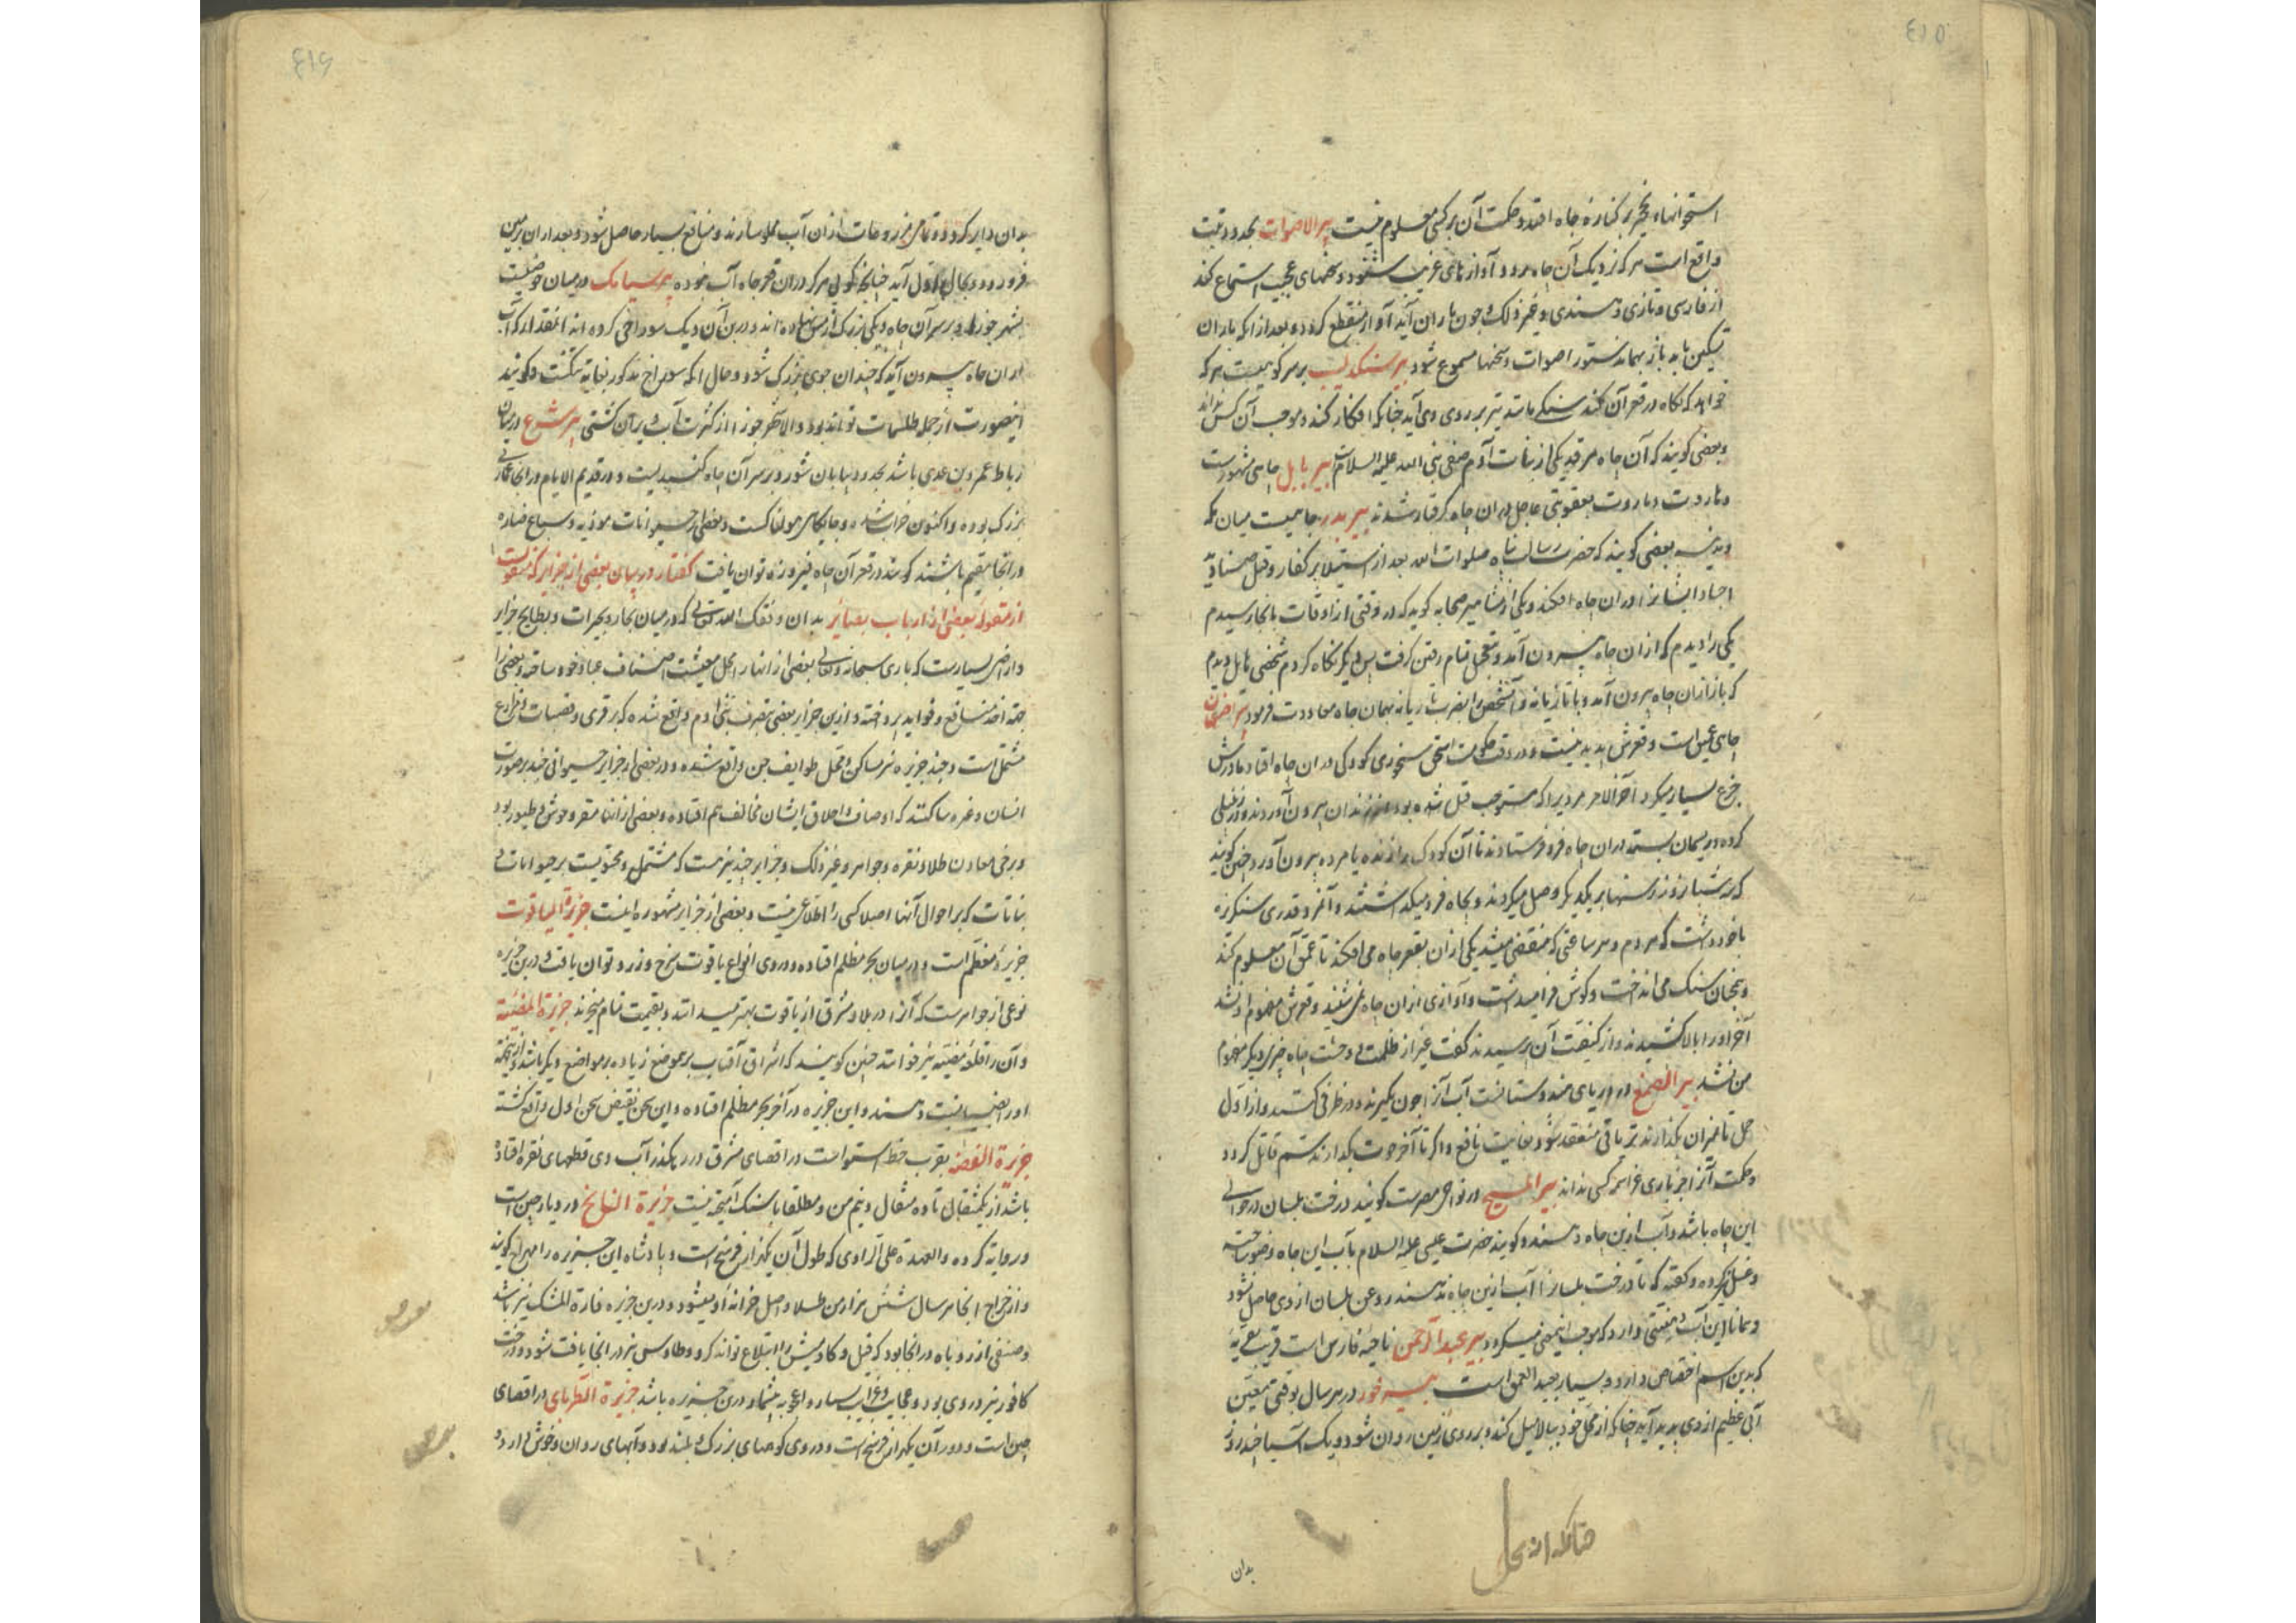 استخوانها و غیره بر کناره چاه افتد و حکمت آن بر کسی معلوم نیست بیر الاصوات بحدود تبت
واقع است هر که نزدیک آن چاه رود آوازهای غریب شنود و سخنهای عجیب استماع کند
از فارسی و تازی و هندی و غیر ذلک و چون باران آید آواز منقطع گردد و بعد از آنکه باران
تسکین یابد باز بهمان دستور اصوات و سخنها مسموع شود بیر بر سر کوهیست هر که
خواهد که نگاه در قعر آن کند سنگی مانند تیر بر روی وی آید چنانکه افکار کند و موجب آن کس نداند
و بعضی گویند که آن چاه مرقد یکی از بنات آدم صفی نبی الله علیه السلام است بیر بابل چاهی مشهور است
و هاروت و ماروت بعقوبتی عاجل در ان چاه گرفتار شدند بیر بدر چاهیست میان مکه
و مدینه بعضی گویند که حضرت رسالت پناه صلوات الله بعد از استیلا بر کفار و قتل صنادید
اجساد ایشانرا در ان چاه افکند و یکی از مشاهیر صحابه گوید که در وقتی از اوقات بانجا رسیدم
یکی را دیدم که از ان چاه بیرون آمد و بتعجیل تمام رفتن گرفت پس دیگر نگاه کردم شخصی هایل دیدم
که باز از ان چاه بیرون آمد و با تازیانه و آنشخص را بضرب تازیانه بهمان چاه معاودت فرمود
چاهی عمیق است و قعرش پدید نیست و در وقت حکومت اسحق کودکی در ان چاه افتاد مادرش
جزع بسیار میکرد آخر الامر مردیرا که مستوجب قتل شده بود از زندان بیرون آوردند و در زنبیلی
کرده و ریسمان بسته در ان چاه فرو فرستادند تا آن کودک را زنده یا مرده بیرون آورد چنین گویند
که سه شبانروز رسنها بر یکدیگر وصل میکردند و بچاه فرو میگذاشتند و آنمرد قدری سنگریزه
باخود داشت که مردم و هر ساعتی که منقضی میشد یکی از ان بقعر چاه می افکند تا عمق آن معلوم کند
و همچنان سنگ می انداخت و گوش فرا میداشت و آوازی از ان چاه نمی شنید و قعرش مفهوم او نشد
آخر او را بالا کشیدند و از کیفیت آن پرسیدند گفت غیر از ظلمت و وحشت چاه چیزی دیگر مفهوم
من نشد بیر در دریای هندوستانست آب آنرا چون بگیرند و در ظرفی کنند و از اول
حمل تا میزان بگذارند تریاقی منعقد شود بغایت نافع و اگر تا آخر حوت بگذارند سم قاتل گردد
و حکمت آنرا جز باری عز اسمه کسی نداند بیر المسیح در نواحی مصرست گویند درخت بلسان در حوالی
این چاه باشد و آب ازین چاه دهند و گویند حضرت عیسی علیه السلام بآب این چاه وضو ساخته
و غسل کرده و گفته که تا درخت بلسانرا آب ازین چاه ندهند روغن بلسان از وی حاصل نشود
و همانا این آب خاصیتی دارد که موجب اینمعنی میگردد بیر عبد الرحمن ناحیه فارس است قریب بقریه
که بدین اسم اختصاص دارد و بسیار بعید العمق است در هر سال بوقتی معین
آبی عظیم از وی پدید آید چنانکه از محل خود ببالا میل کند و بر روی زمین روان شود و یک آسیا چند روز
بدان
بدان دایر گردد و تمامی مزروعات از ان آب مملو سازند و منافع بسیار حاصل شود و بعد از ان بزمین
فرو رود و بحال اول آید چنانچه گوئی هرگز در ان قعر چاه آب نبوده بیر سیامک در میان حوضیست
بشهر جور و بر سر آن چاه دیگی بزرگ از مس نهاده اند و در بن آن دیک سوراخی کرده اند آنمقدار که آب
از ان چاه بیرون آید که چندان جوی بزرگ شود و حال آنکه سوراخ مذکور بغایة تنگست و گویند
اینصورت از جمله طلسمات تواند بود و الا شهر جور از کثرت آب ویران گشتی بیر در میان
رباط عمرو بن عدی باشد بحدود بیابان شور و بر سر آن چاه گنبدیست و در قدیم الایام در انجا عمارتی
بزرگ بوده و اکنون خراب شده و جایگاهی هولناکست و بعضی از حیوانات موذیه و سباع ضاره
در انجا مقیم باشند گویند در قعر آن چاه فیروزه توان یافت گفتار در بیان بعضی از جزایر که منقولست
از مقوله بعضی از ارباب بصایر بدان وفقک الله تعالی که در میان بحار و بحیرات و بطایح جزایر
و اراضی بسیارست که باری سبحانه و تعالی بعضی از انها را محل معیشت اصناف عباد خود ساخته و بعضی را
جهة اخذ منافع و فواید پرداخته و ازین جزایر بعضی بتصرف بنی آدم واقع شده که بر قری و قصبات و مزارع
مشتمل است و چند جزیره نیز مساکن و محل طوایف جن واقع شده و در بعضی از جزایر حیوانی چند بر صورت
انسان و غیره ساکنند که اوصاف و اخلاق ایشان مخالف هم افتاده و بعضی از انها مقر وحوش و طیور بود
و برخی معادن طلا و نقره و جواهر و غیر ذلک و جزایر چند نیز هست که مشتمل و محتویست بر حیوانات و
نباتات که بر احوال آنها اصلا کسی را اطلاعی نیست و بعضی از جزایر مشهوره اینست جزیرة الیاقوت
جزیرۀ معظم است و در میان بحر مظلم افتاده و در وی انواع یاقوت سرخ و زرد توان یافت و درین جزیره
نوعی از جواهرست که آنرا در بلاد مشرق از یاقوت بهتر میدانند و بقیمت تمام میخرند جزیرة المضیئه
و آن را قلعۀ مضیئه نیز خوانند چنین گویند که اشراق آفتاب برین موضع زیاده بر مواضع دیگر باشد و ازینجهة
او را نسبت دهند و این جزیره در آخر بحر مظلم افتاده و این سخن نقیض سخن اول واقع گشته
جزیرة الفضه بقرب خط استوا است در اقصای مشرق در رهگذر آب وی قطعهای نقره افتاده
باشد از یکمثقال تا ده مثقال و نیم من و مطلقا با سنگ آمیخته نیست جزیرة در دیار چین است
و روایة کرده و العهدة علی الراوی که طول آن یکهزار فرسخ است و پادشاه این جزیره را مهراج گویند
و از خراج انجا هر سال شش هزار من طلا واصل خزانۀ او میشود و درین جزیره فارة المشک نیز باشد
و صنفی از روباه در انجا بود که فیل و گاومیش را ابتلاع تواند کرد و طاوس نیز در انجا یافت شود و درخت
کافور نیز در وی بود و عجایب و غرایب بسیار و اعجوبه بیشمار درین جزیره باشد جزیرة در اقصای
چین است و دور آن یکهزار فرسخ است و در وی کوههای بزرگ و بلند بود و آبهای روان و خوش دارد و